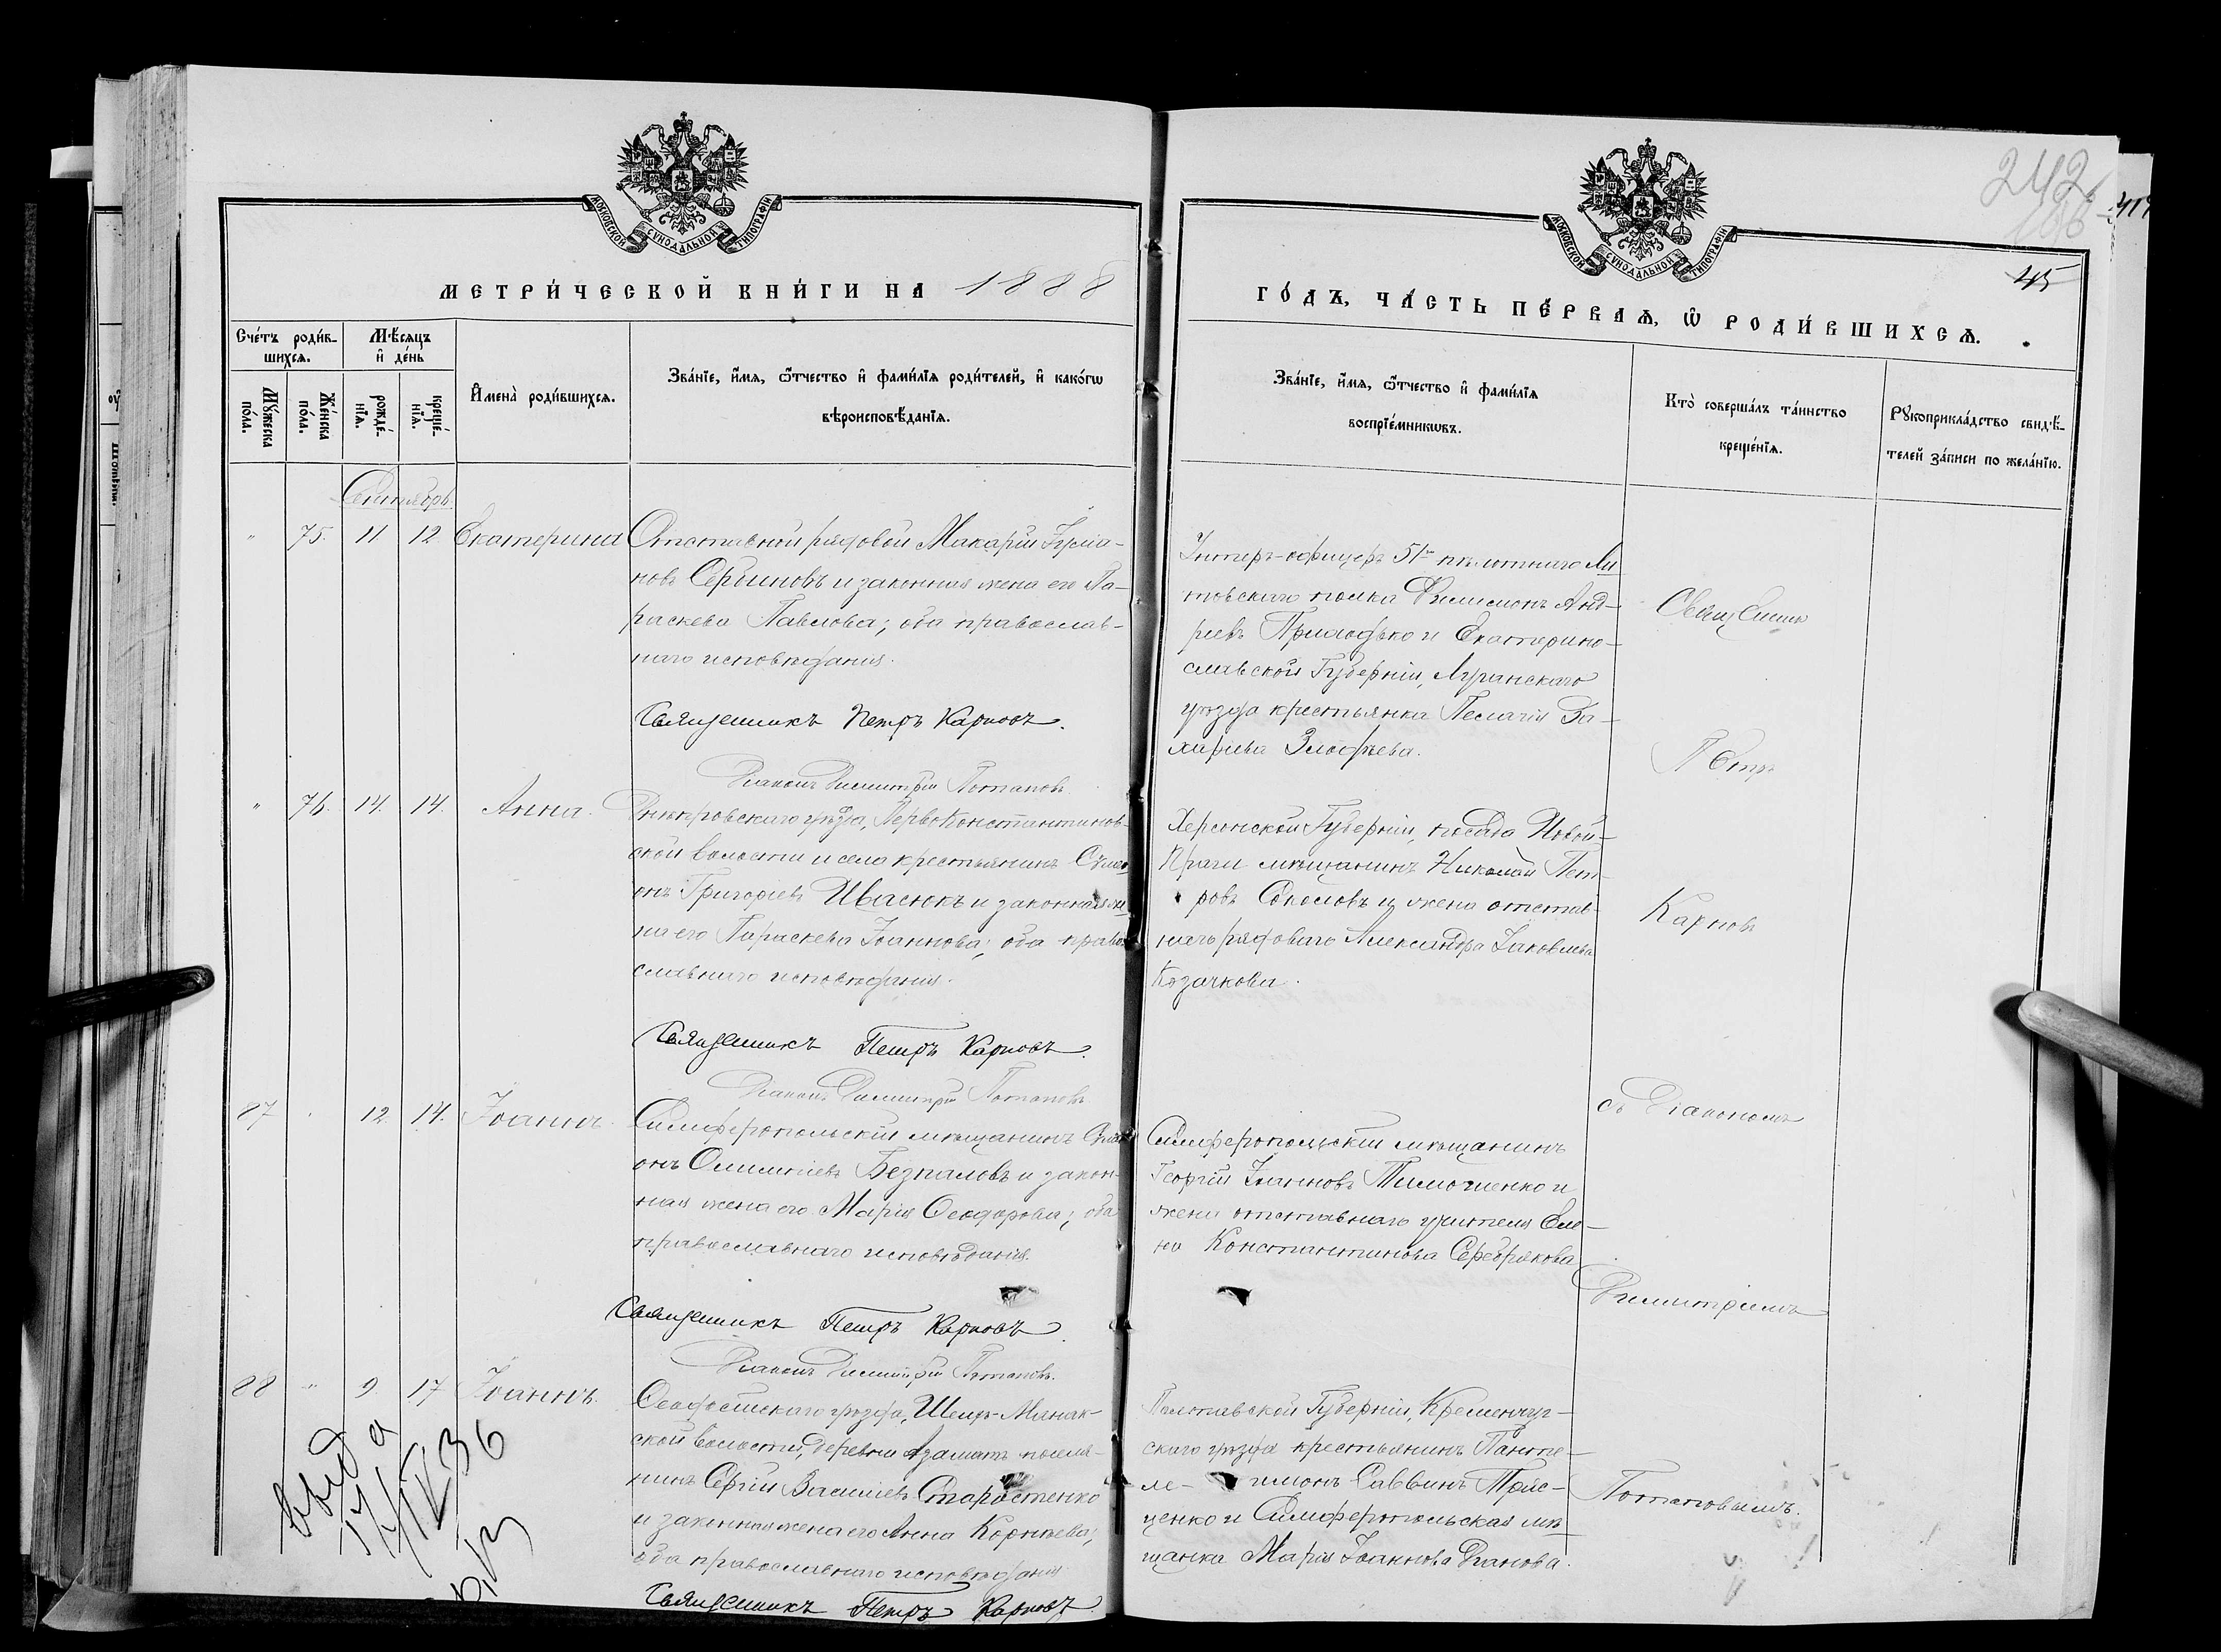 МОСКОВСКОЙ СѴНОДАЛЬНОЙ ТИПОГРАФІИ
МЕТРИ́ЧЕСКОЙ КНИ́ГИ НА 1888
Сче́тъ роди́в-
шихся.
Мѣ́сяцъ
и де́нь
Му́жеска
по́ла.
Же́нска
по́ла.
рожде́-
нїя.
креще́-
нїя.
Имена̀ роди́вшихся.
Зва́нїе, и́мя, ѻ҆́тчество и фами́лїя роди́телей, и како́гѡ
вѣроисповѣ́данїя.
Сентябрь.
" 75. 11 12 Екатерина
Отставной рядовой Макарій
Сербиновъ и законная жена его Па-
раскева Павлова; оба православ-
наго исповѣданія.
Священникъ Петръ Карповъ.
Діаконъ Димитрій Потаповъ.
" 76. 14. 14. Анна.
Днѣпровскаго уѣзда, Первоконстантинов-
ской волости и села крестьянинъ Сѵме-
онъ Григоріевъ Ивасюкъ и законная же
на его Параскева Іоаннова; оба право
славнаго исповѣданія.
Священникъ Петръ Карповъ.
Діаконъ Димитрій Потаповъ
87 12 14. Іоаннъ.
Симферопольскій мѣщанинъ Сѵме
онъ Безпаловъ и закон-
ная жена его Марія Ѳеодорова; оба
православнаго исповѣданія.
Священникъ Петръ Карповъ.
Діаконъ Димитрій Потаповъ.
88 " 9 17 Іоаннъ.
Ѳеодосійскаго уѣзда,
ской волости, деревни Азаматъ поселя-
нинъ Сергій Василіевъ Старостенко
и законная жена его Анна Корнѣева;
оба православнаго исповѣданія
Священникъ Петръ Карповъ.
выда
17/IV 36
242
166
417
45
МОСКОВСКОЙ СѴНОДАЛЬНОЙ ТИПОГРАФІИ
ГО́ДЪ, ЧА́СТЬ ПЕ́РВАЯ, Ѡ҆ РОДИ́ВШИХСЯ.
Зва́нїе, и́мя, ѻ҆́тчество и фами́лїя
воспрїе́мникѡвъ.
Кто̀ соверша́лъ та́инство
креще́нїя.
Рꙋкоприкла́дство свидѣ́-
телей за́писи по жела́нїю.
Унтеръ-офицеръ 51го пѣхотнаго Ли
товскаго полка Филимонъ Анд-
реевъ Прилодько и Екатерино-
славской Губерніи, Луганскаго
уѣзда крестьянка Пелагія За-
харіева Злодѣева.
Херсонской Губерніи, посада Новой-
Праги мѣщанинъ Николай Пет-
ровъ Соколовъ и жена отстав-
наго рядоваго Александра Іаковлева
Козачкова.
Симферопольскій мѣщанинъ
Георгій Іоанновъ Тимошенко и
жена отставнаго учителя Еле-
на Константинова Серебрякова
Полтавской Губерніи, Кременчуг-
скаго уѣзда крестьянинъ Панте-
ле- имонъ Саввинъ Трис-
ценко и Симферопольская мѣ
щанка Марія Іоаннова Дианова.
Священникъ
Петръ
Карповъ
съ Діакономъ
Димитріемъ
Потаповымъ.